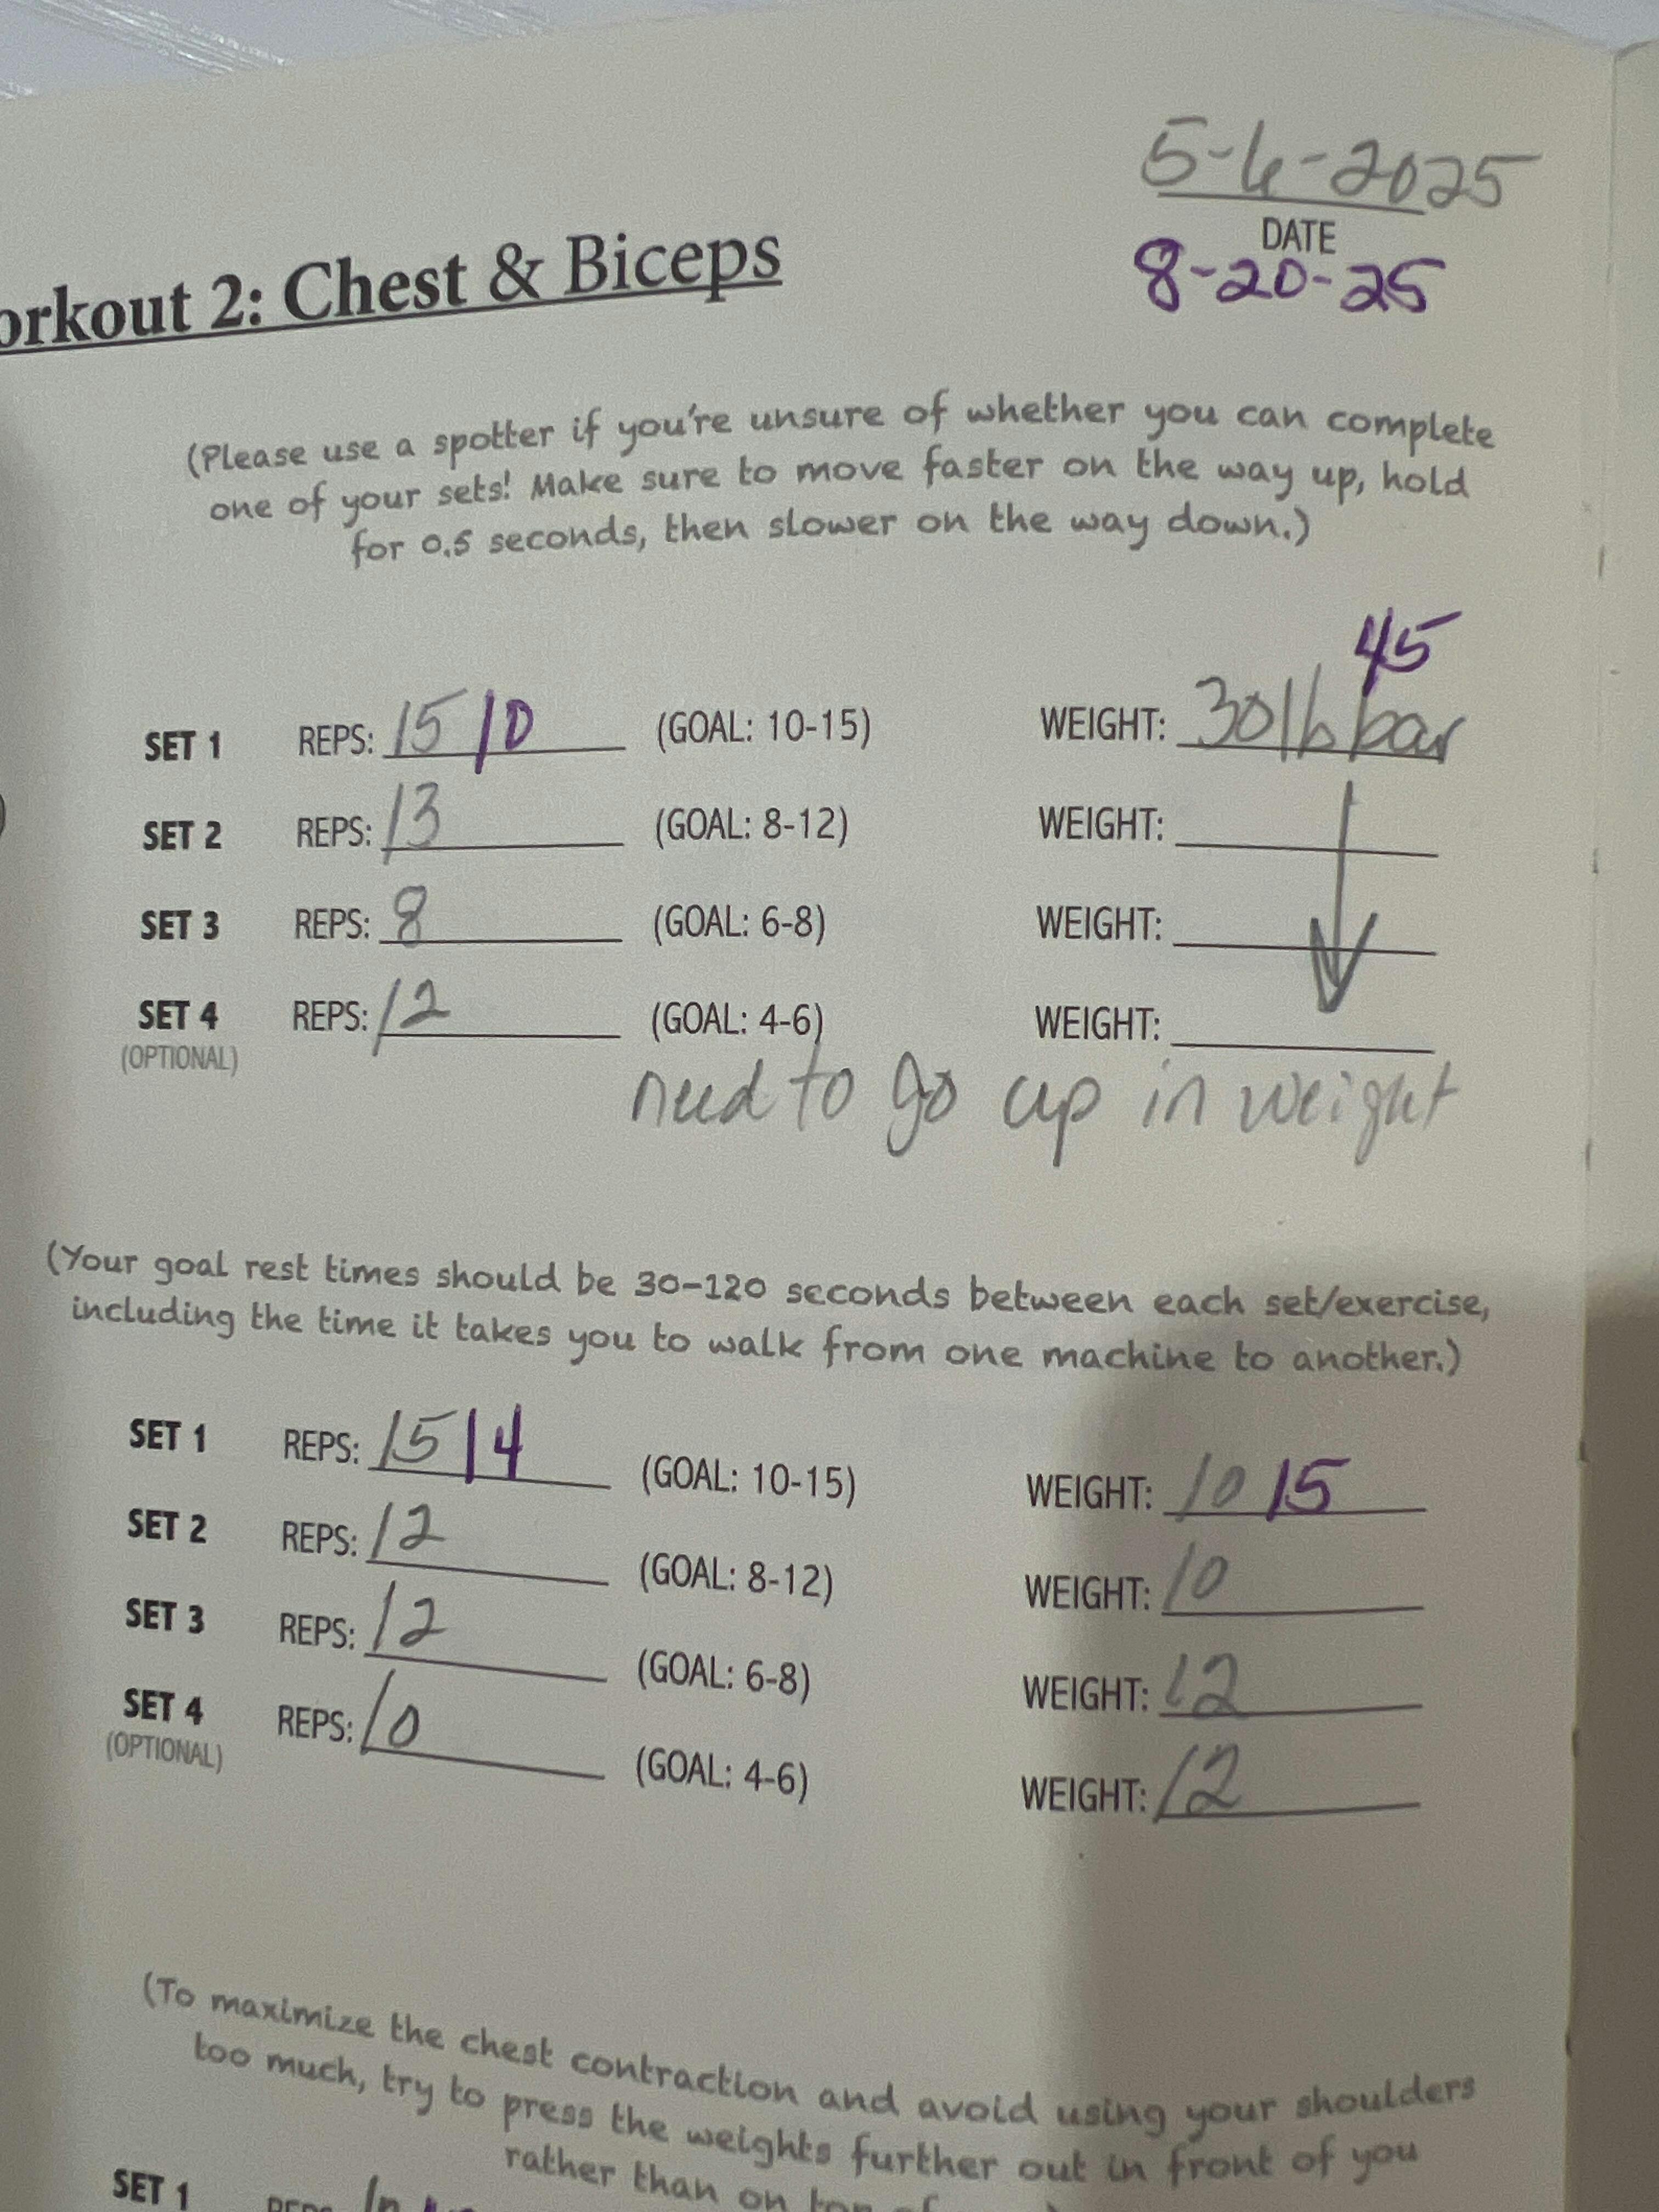 5-6-2025
DATE
8-20-25
orkout 2: Chest & Biceps
(Please use a spotter if you're unsure of whether you can complete
one of your sets! Make sure to move faster on the way up, hold
for 0.5 seconds, then slower on the way down.)
45
SET 1 REPS: 15 10 (GOAL: 10-15) WEIGHT: 30lb bar
SET 2 REPS: 13 (GOAL: 8-12) WEIGHT:
SET 3 REPS: 8 (GOAL: 6-8) WEIGHT:
SET 4 REPS: 12 (GOAL: 4-6) WEIGHT:
(OPTIONAL)
need to go up in weight
(Your goal rest times should be 30-120 seconds between each set/exercise,
including the time it takes you to walk from one machine to another.)
SET 1 REPS: 15 14 (GOAL: 10-15) WEIGHT: 10 15
SET 2 REPS: 12 (GOAL: 8-12) WEIGHT: 10
SET 3 REPS: 12 (GOAL: 6-8) WEIGHT: 12
SET 4 REPS: 10 (GOAL: 4-6) WEIGHT: 12
(OPTIONAL)
(To maximize the chest contraction and avoid using your shoulders
too much, try to press the weights further out in front of you
rather than on top of
SET 1 REPS: